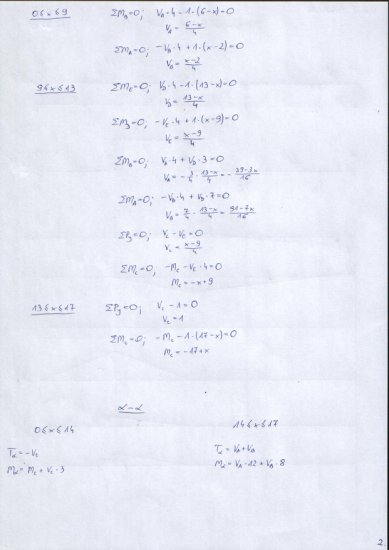 0≤x≤9 ΣM_B=0; V_A·4-1·(6-x)=0
V_A=\frac{6-x}{4}
ΣM_A=0; -V_B·4+1·(x-2)=0
V_B=\frac{x-2}{4}
9≤x≤13 ΣM_C=0; V_D·4-1·(13-x)=0
V_D=\frac{13-x}{4}
ΣM_D=0; -V_C·4+1·(x-9)=0
V_C=\frac{x-9}{4}
ΣM_B=0; V_A·4+V_D·3=0
V_A=-\frac{3}{4}·\frac{13-x}{4}=-\frac{39-3x}{16}
ΣM_A=0; -V_B·4+V_D·7=0
V_B=\frac{7}{4}·\frac{13-x}{4}=\frac{91-7x}{16}
ΣP_y=0; V_C-V_C=0
V_C=\frac{x-9}{4}
ΣM_C=0; -M_C-V_C·4=0
M_C=-x+9
13≤x≤17 ΣP_y=0; V_C-1=0
V_C=1
ΣM_C=0; -M_C-1·(17-x)=0
M_C=-17+x
α-α
0≤x≤14 14≤x≤17
T_α=-V_C T_α=V_A+V_B
M_α=M_C+V_C·3 M_α=V_A·12+V_B·8
2